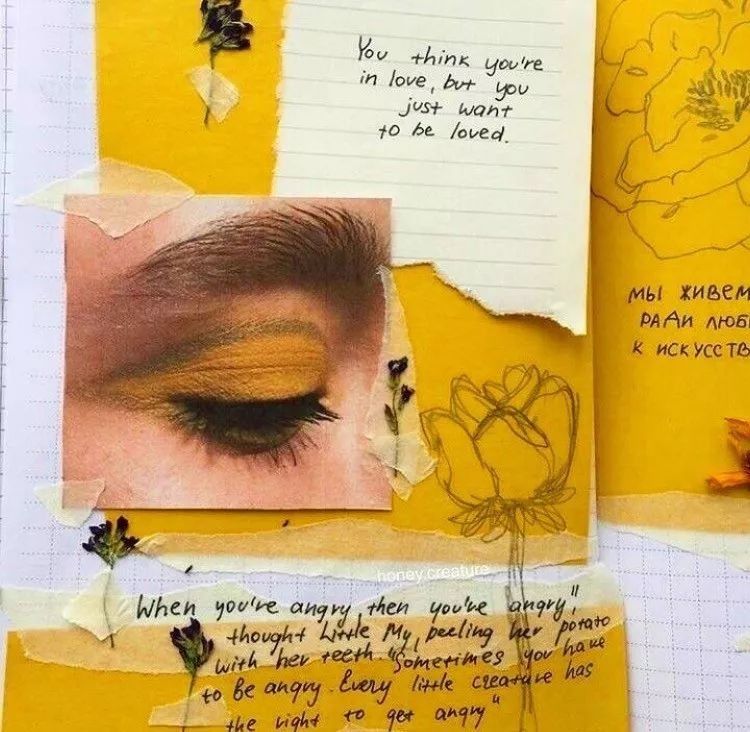 You think you're
in love, but you
just want
to be loved.
МЫ ЖИВЕМ
РАДИ ЛЮБ
К ИСКУССТВ
honey.creature
When you're angry, then you're angry,"
thought Little My, peeling her potato
with her teeth. "Sometimes you have
to be angry. Every little creature has
the right to get angry"